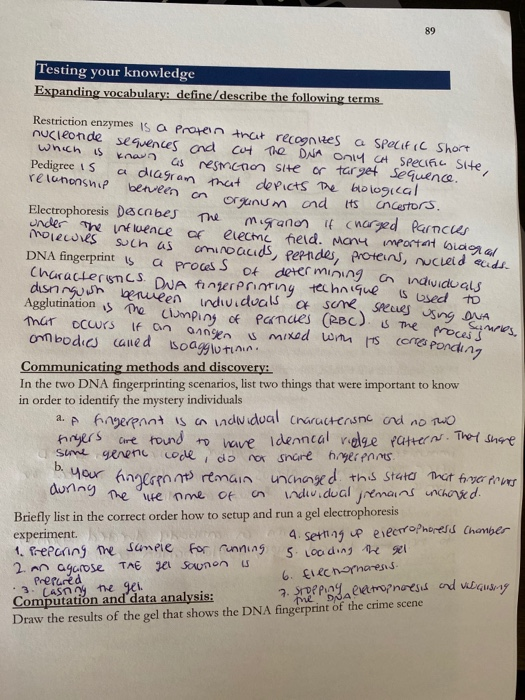 89
Testing your knowledge
Expanding vocabulary: define/describe the following terms
Restriction enzymes is a protein that recognizes a specific short
nucleotide sequences and cut the DNA only at specific site,
which is known as restriction site or target sequence.
Pedigree is a diagram that depicts the biological
relationship between an organism and its ancestors.
Electrophoresis Describes the migration if charged particles
under the influence of electric field. Many important biological
molecules such as aminoacids, peptides, proteins, nucleid acids.
DNA fingerprint is a process of determining an individuals
characteristics. DNA fingerprinting technique is used to
distinguish between individuals of same species using DNA
samples.
Agglutination is the clumping of particles (RBC). is the process
that occurs if an antigen is mixed with its corresponding
antibodies called isoagglutinin.
Communicating methods and discovery:
In the two DNA fingerprinting scenarios, list two things that were important to know
in order to identify the mystery individuals
a. A fingerprint is an individual characteristic and no two
fingers are found to have identical ridge patterns. They share
same genetic code, do not share fingerprints.
b. Your fingerprints remain unchanged this states that fingerprints
during the life time of an individual remains unchanged.
Briefly list in the correct order how to setup and run a gel electrophoresis
experiment.
1. Preparing the sample for running
2. An agarose TAE gel solution is
prepared
3. Casting the gel
4. setting up electrophoresis chamber
5. Loading the gel
6. Electrophoresis.
7. stopping electrophoresis and
the DNA
Computation and data analysis:
Draw the results of the gel that shows the DNA fingerprint of the crime scene